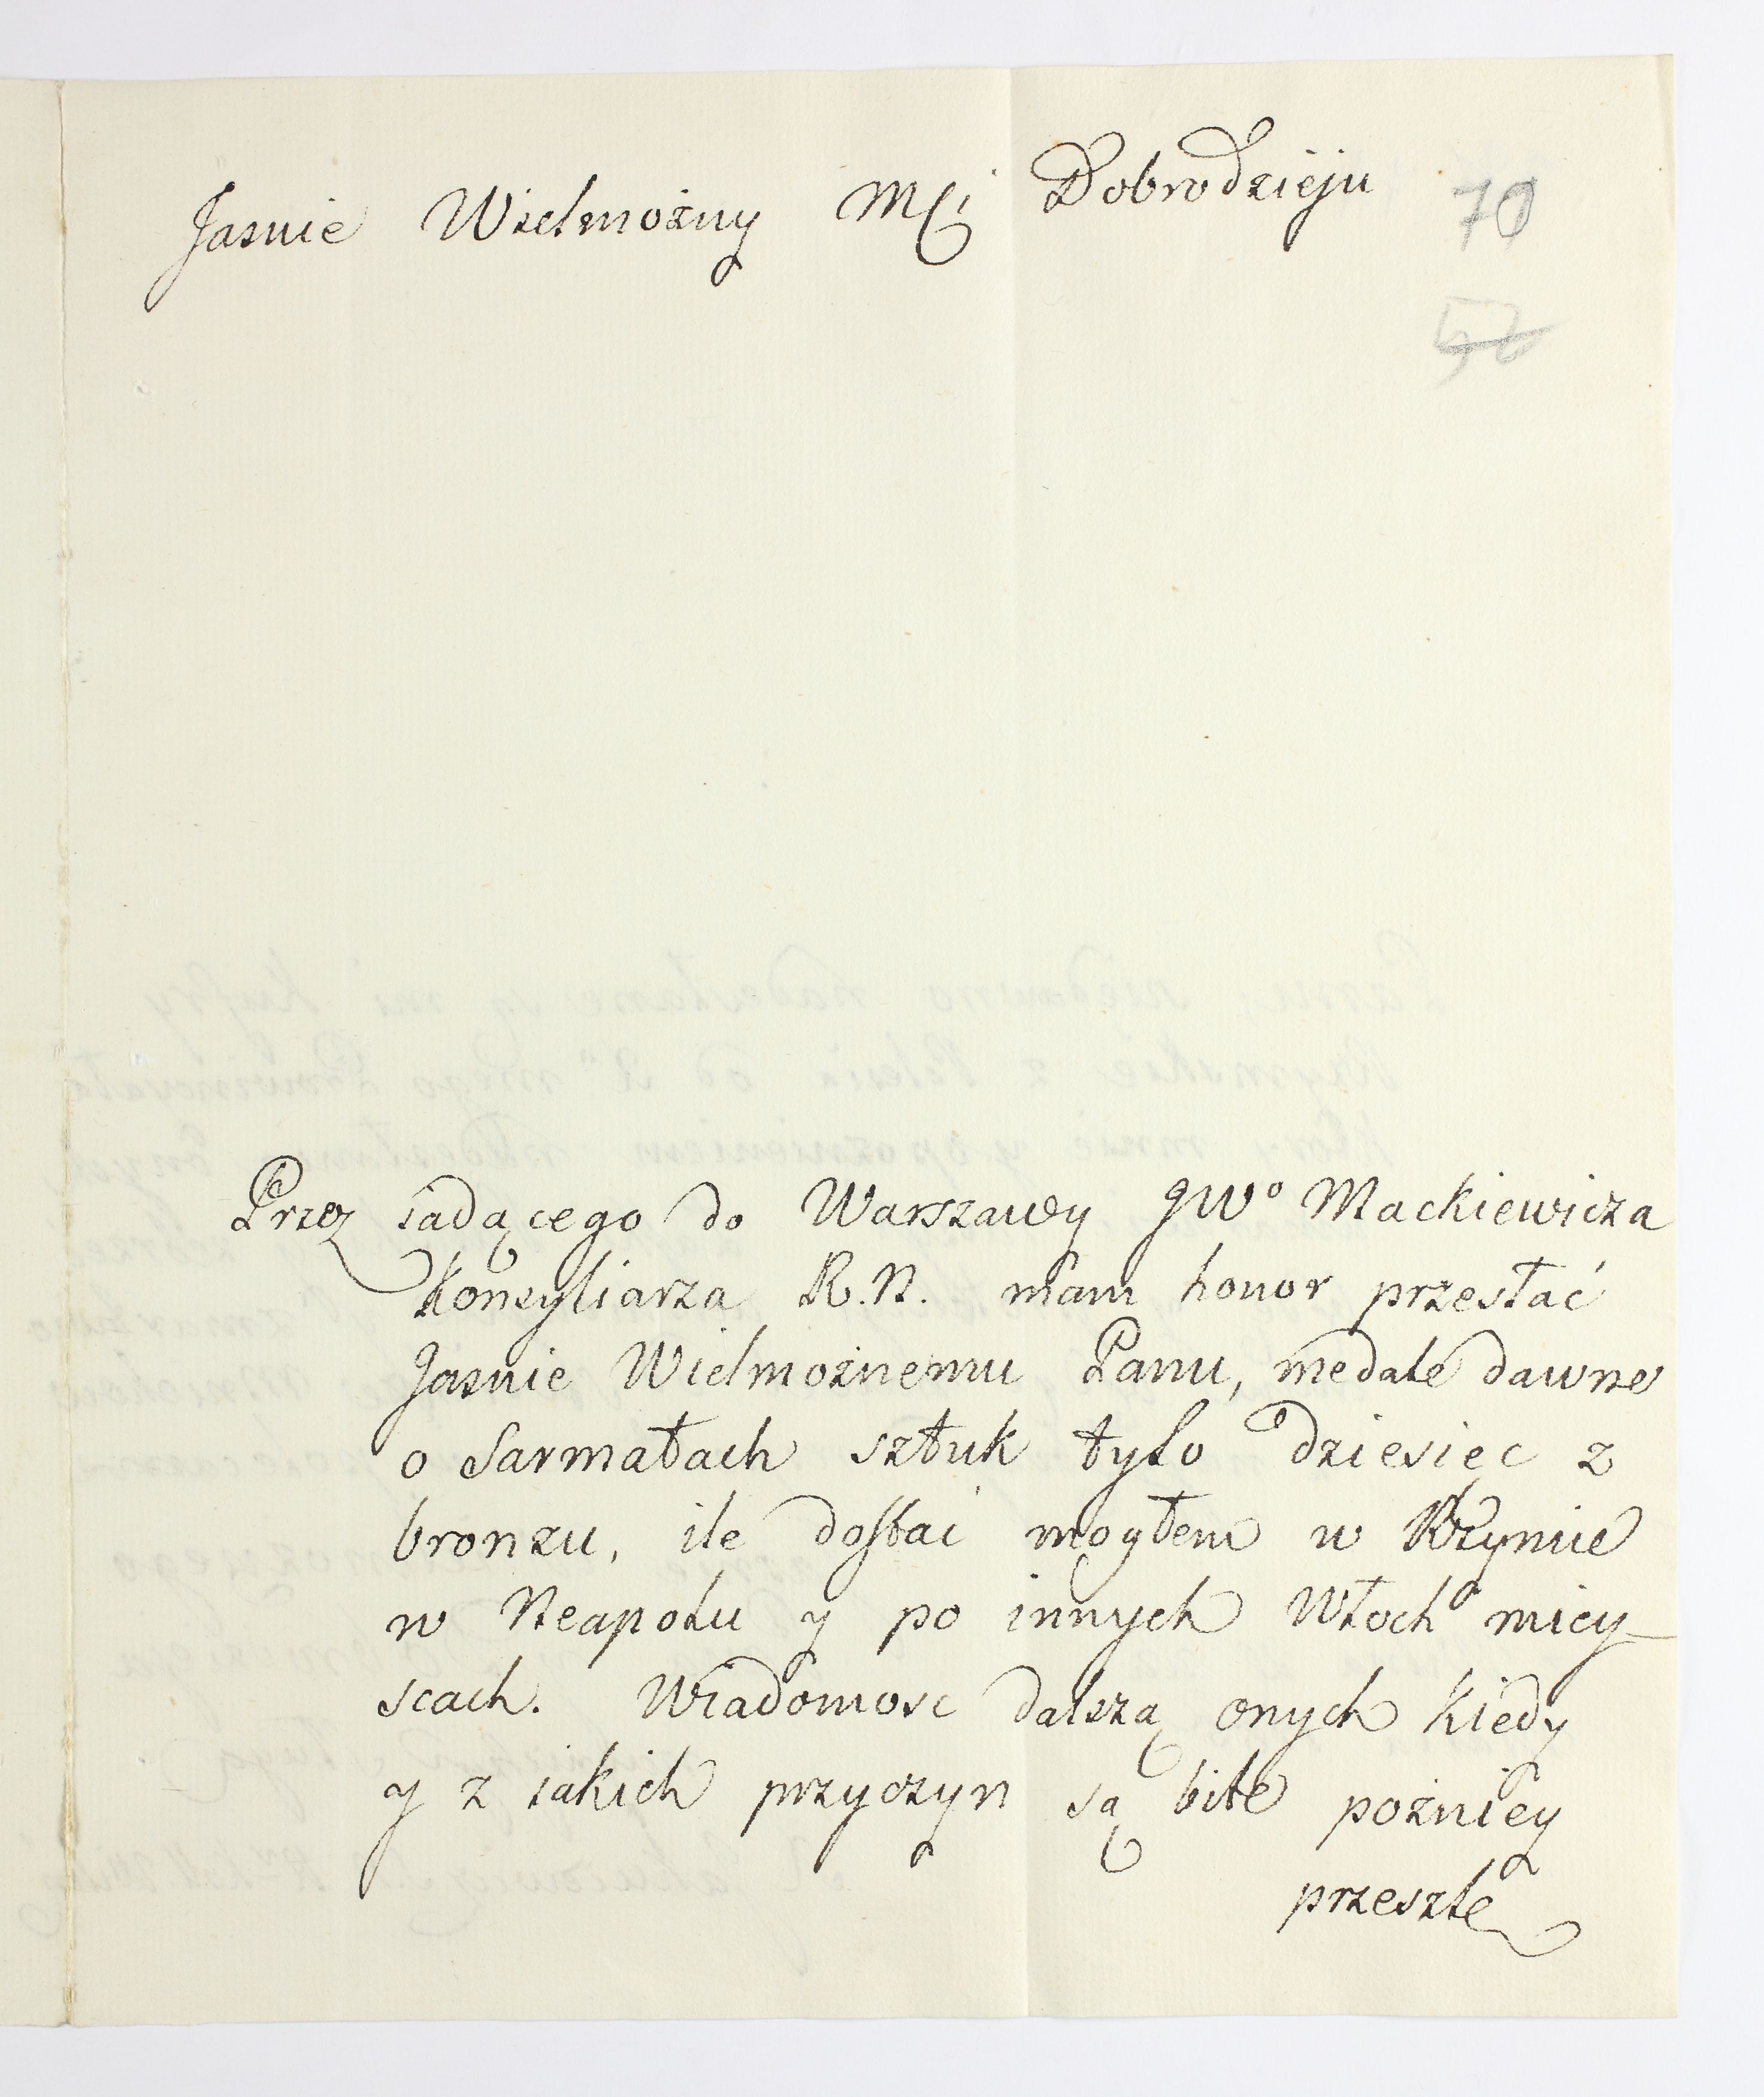 Jasnie Wielmożny Mci Dobrodzieju
70
Przez iadącego do Warszawy JWo Mackiewicza
Konsyliarza R.N. mam honor przesłać
Jasnie Wielmożnemu Panu, medale dawne
o Sarmatach sztuk tylo dziesięc z
bronzu, ile dostać mogłem w Rzymie
w Neapolu y po innych Włoch miey-
scach. Wiadomosc dalszą onych kiedy
y z iakich przyczyn są bite pozniey
przeszlę